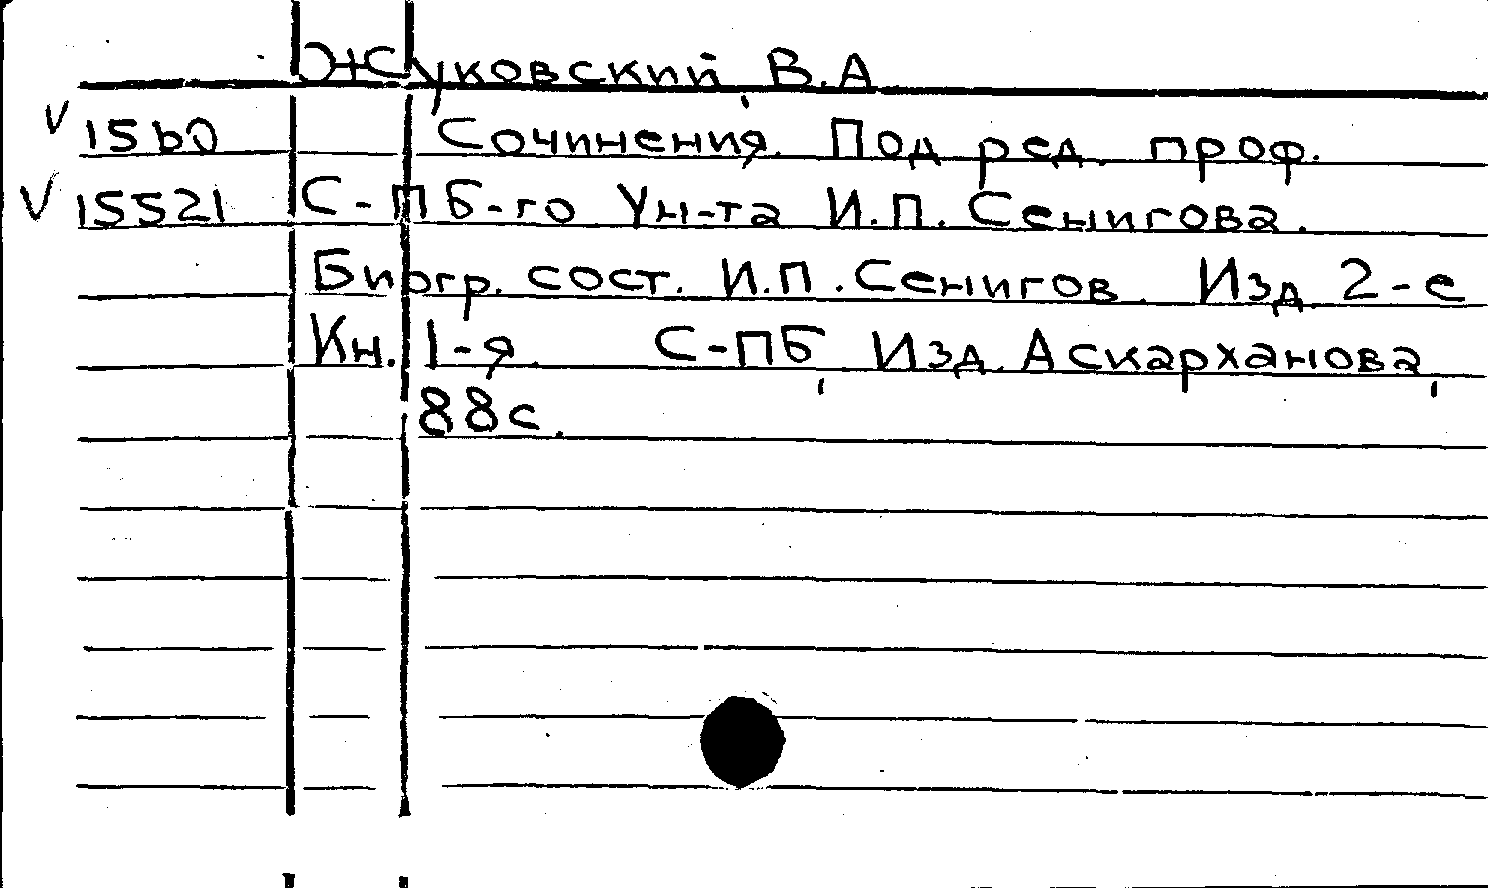 Жуковский, В.А.
V 1560 Сочинения. Под ред. проф.
V 15521 С-ПБ-го Ун-та И.П. Сенигова.
Биогр. сост. И.П. Сенигов. Изд. 2-е
Кн. 1-я. С-ПБ, Изд. Аскарханова,
88с.